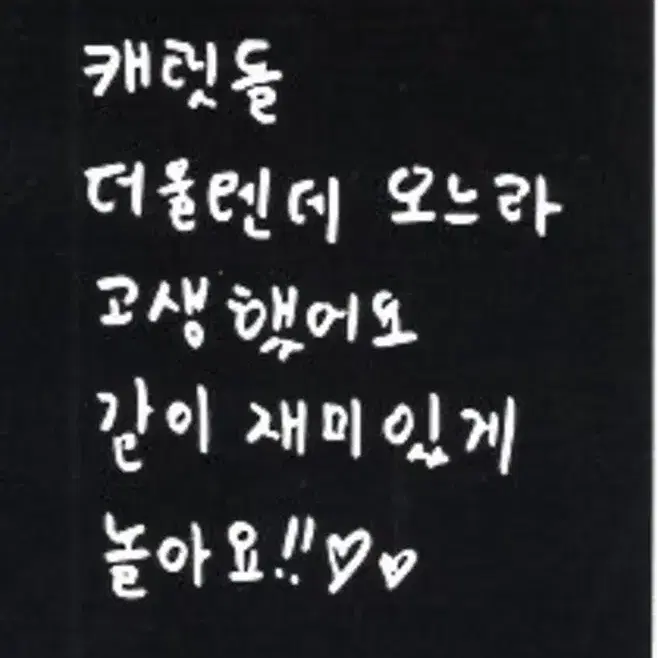 캐럿돌
더울텐데 오느라
고생했어요
같이 재미있게
놀아요!!♡♡